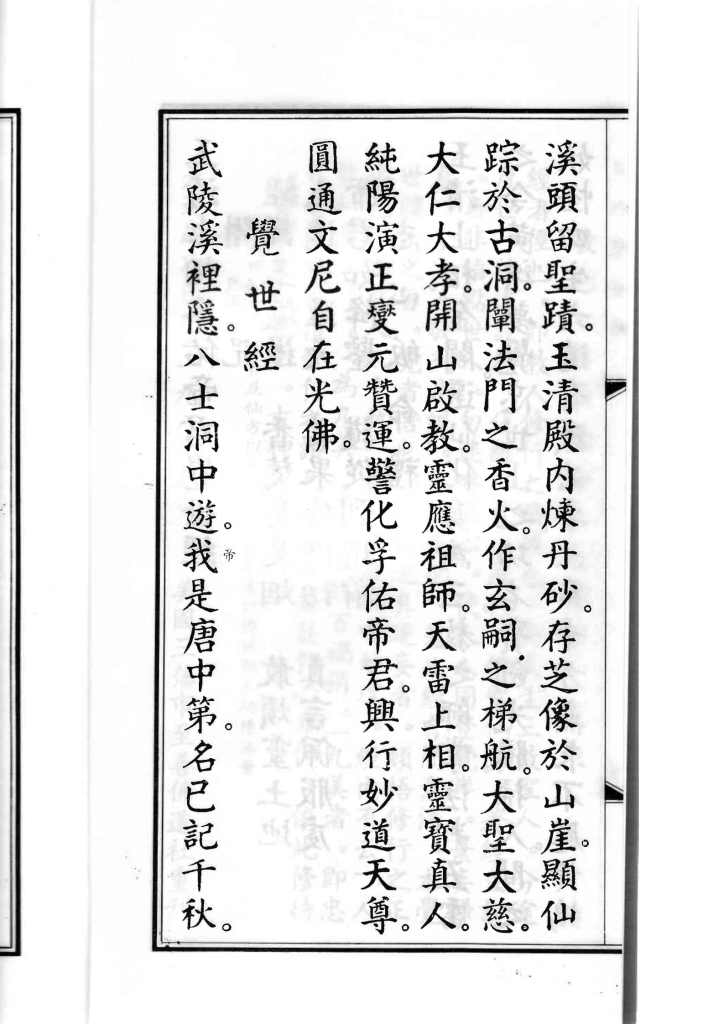 溪頭留聖蹟。玉清殿內煉丹砂。存芝像於山崖。顯仙
踪於古洞。闡法門之香火。作玄嗣之梯航。大聖大慈。
大仁大孝。開山啟教。靈應祖師。天雷上相。靈寶真人。
純陽演正燮元贊運。警化孚佑帝君。興行妙道天尊。
圓通文尼自在光佛。
覺世經
武陵溪裡隱。八士洞中遊。我帝是唐中第。名已記千秋。